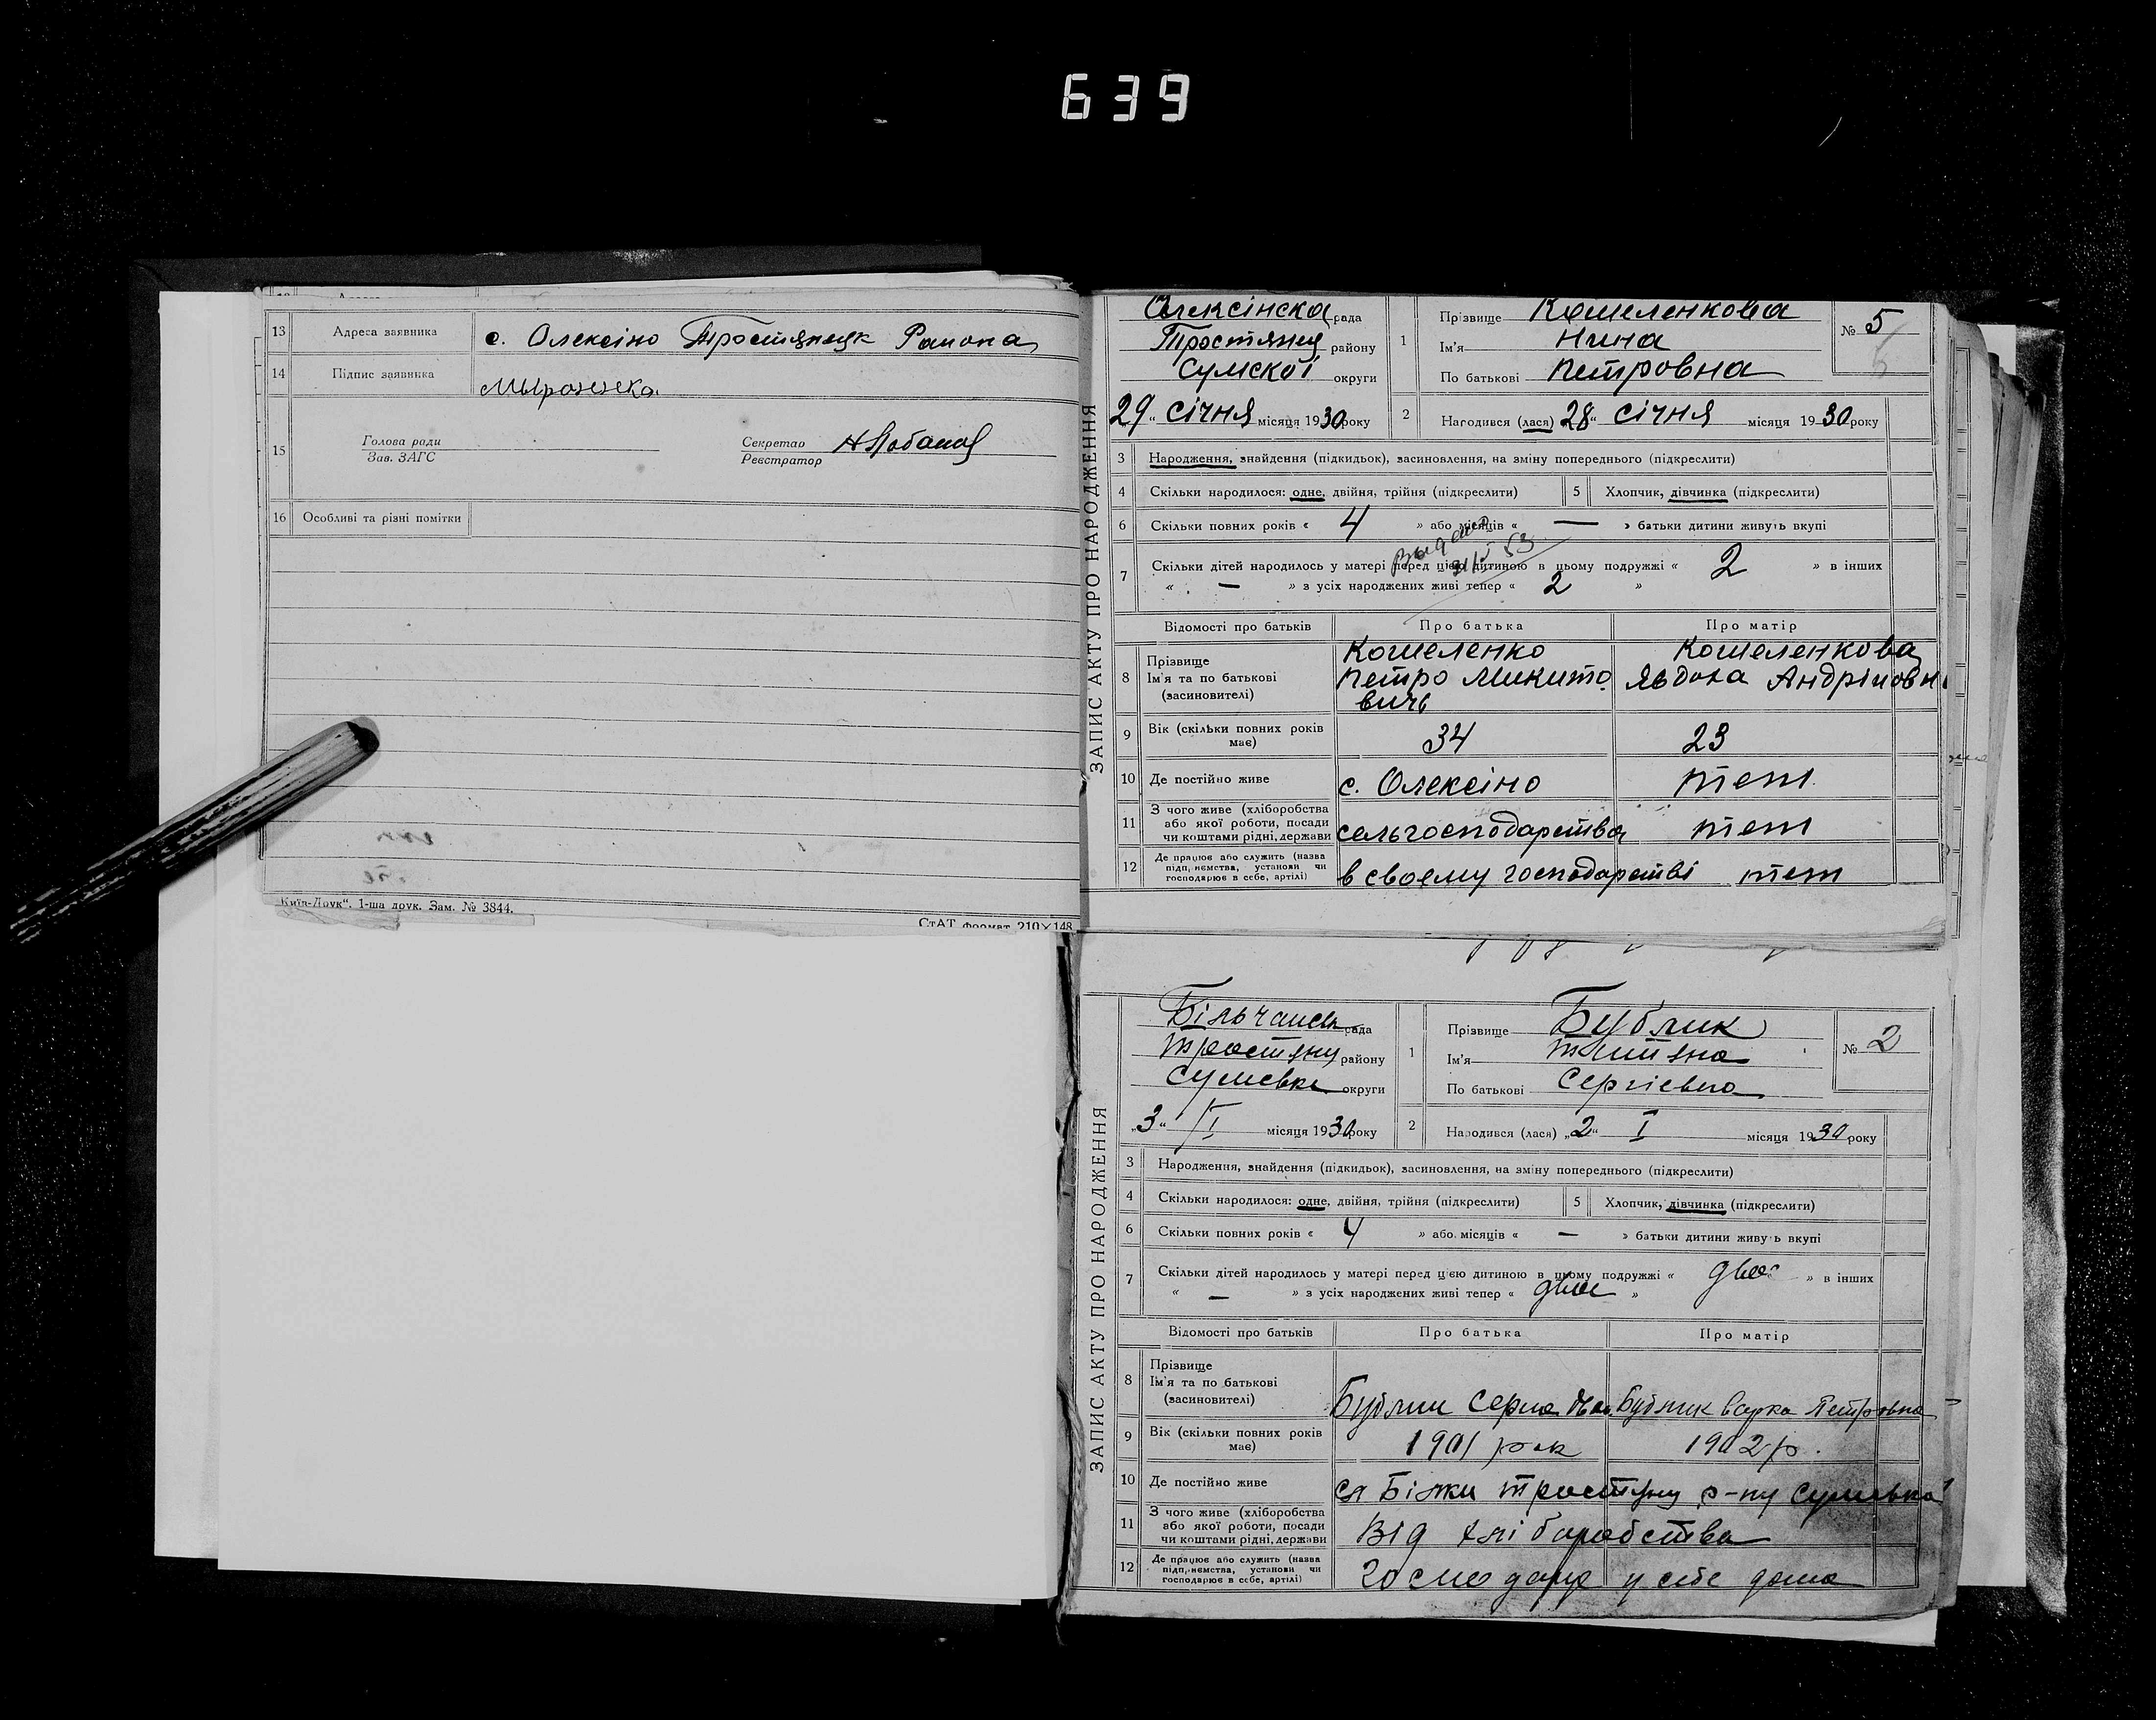 639
13 Адреса заявника с. Олексіно Тростянецк Района
14 Підпис заявника
15 Голова ради
Зав. ЗАГС
Секретар
Реєстратор
16 Особливі та різні помітки
Київ-Друк“. 1-ша друк. Зам. № 3844.
СтАТ формат 210×148
ЗАПИС АКТУ ПРО НАРОДЖЕННЯ
Олексінска рада
Тростянец району
Сумскої округи
1 Прізвище Кошеленкова
Ім'я Нина
По батькові Петровна
№ 5
29“ січня місяця 1930 року
2 Народився (лася) 28“ січня місяця 1930 року
3 Народження, знайдення (підкидьок), засиновлення, на зміну попереднього (підкреслити)
4 Скільки народилося: одне, двійня, трійня (підкреслити) 5 Хлопчик, дівчинка (підкреслити)
6 Скільки повних років « 4 » або місяців « — » батьки дитини живуть вкупі
7 Скільки дітей народилось у матері перед цією дитиною в цьому подружжі « 2 » в інших
« — » з усіх народжених живі тепер « 2 »
Відомості про батьків Про батька Про матір
8 Прізвище
Ім'я та по батькові
(засиновителі)
Кошеленко
Петро Микито
вичь
Кошеленкова
Явдоха Андріиовн
9 Вік (скільки повних років
має) 34 23
10 Де постійно живе с. Олексіно теж
11 З чого живе (хліборобства
або якої роботи, посади
чи коштами рідні, держави сельгосподарства теж
12 Де працює або служить (назва
підприємства, установи чи
господарює в себе, артілі) в своему господарстві теж
ЗАПИС АКТУ ПРО НАРОДЖЕННЯ
рада
Тростянц району
Сумське округи
1 Прізвище Бублик
Ім'я Титяна
По батькові Сергієвна
№ 2
„3“ I місяця 1930 року
2 Народився (лася) „2“ I місяця 1930 року
3 Народження, знайдення (підкидьок), засиновлення, на зміну попереднього (підкреслити)
4 Скільки народилося: одне, двійня, трійня (підкреслити) 5 Хлопчик, дівчинка (підкреслити)
6 Скільки повних років « 4 » або місяців « — » батьки дитини живуть вкупі
7 Скільки дітей народилось у матері перед цією дитиною в цьому подружжі « двое » в інших
« — » з усіх народжених живі тепер « двое »
Відомості про батьків Про батька Про матір
8 Прізвище
Ім'я та по батькові
(засиновителі)
Бублик Бублик Варка Петровна
9 Вік (скільки повних років
має) 1901 рок 1902 р.
10 Де постійно живе Білки р-ну
11 З чого живе (хліборобства
або якої роботи, посади
чи коштами рідні, держави Від хліборобства
12 Де працює або служить (назва
підприємства, установи чи
господарює в себе, артілі) у себе дома